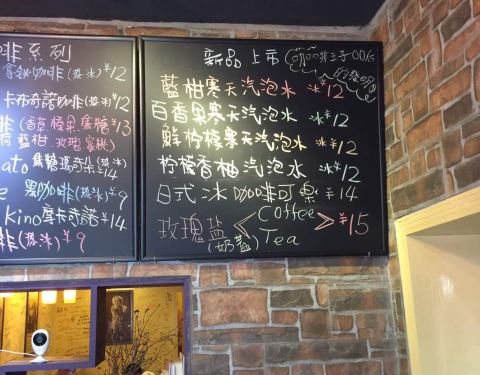 啡系列
拿鉄咖啡(热冰)¥12
卡布奇诺咖啡(热冰)¥12
啡(香草榛果.焦糖¥13
荷 蓝柑.玫瑰.蜜桃)
ato 焦糖瑪奇朵(热冰)¥14
黑咖啡(热冰)¥9
Kino摩卡奇諾¥14
啡(热冰)¥9
新品上市
藍柑寒天汽泡水 冰¥12
百香果寒天汽泡水 冰¥12
鮮柠檬寒天汽泡水 冰¥12
柠檬香柚汽泡水 冰¥12
日式冰咖啡可樂¥14
玫瑰盐(奶蓋) < Coffee Tea > ¥15